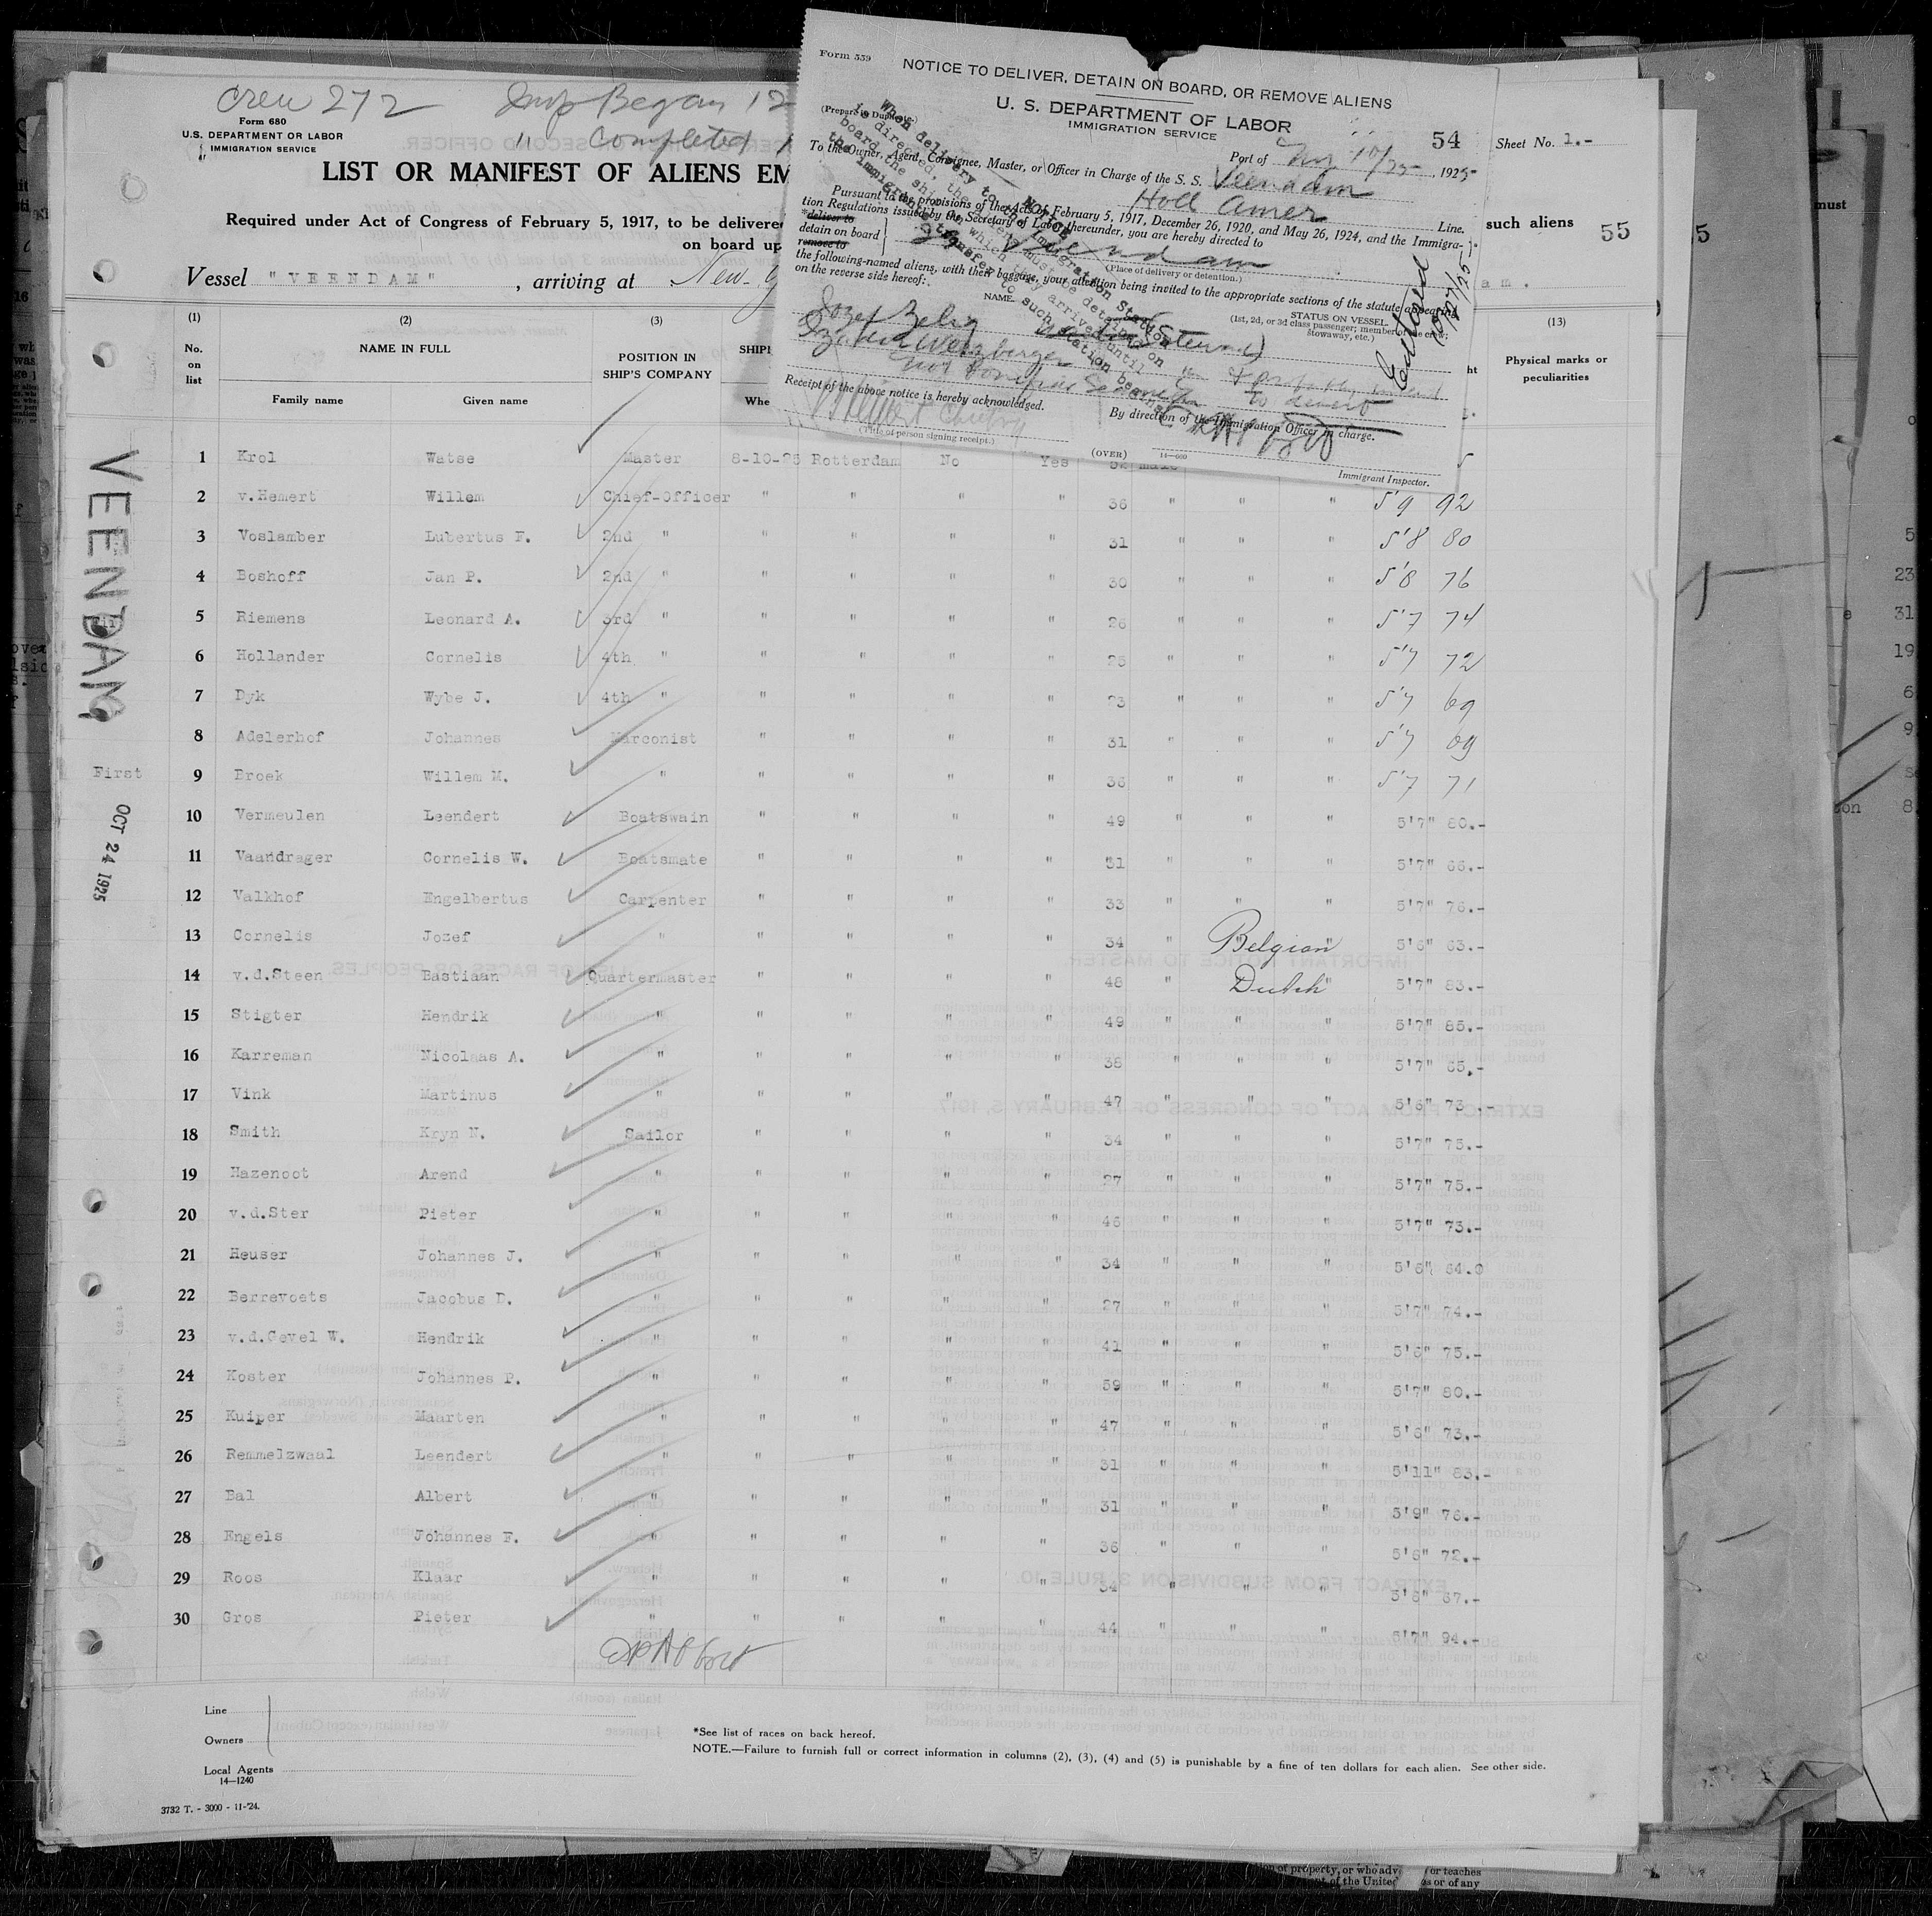 Crew 272 Insp Began 12
" Completed
Form 680
U.S. DEPARTMENT OR LABOR
IMMIGRATION SERVICE
LIST OR MANIFEST OF ALIENS EM
Required under Act of Congress of February 5, 1917, to be delivere
on board up
such aliens 55
Sheet No. 1.-
Vessel "VEENDAM", arriving at New-Y
Form 559
NOTICE TO DELIVER, DETAIN ON BOARD, OR REMOVE ALIENS
U. S. DEPARTMENT OF LABOR
IMMIGRATION SERVICE
54
(Prepare in Duplicate.)
Port of 10/25 , 1925
To the Owner, Agent, Consignee, Master, or Officer in Charge of the S. S. Veendam
Holl Amer Line.
Pursuant to the provisions of the Acts of February 5, 1917, December 26, 1920, and May 26, 1924, and the Immigra-
tion Regulations issued by the Secretary of Labor thereunder, you are hereby directed to
*deliver to
detain on board
remove to
SS Veendam
(Place of delivery or detention.)
the following-named aliens, with their baggage, your attention being invited to the appropriate sections of the statute appearing
on the reverse side hereof:
NAME.
STATUS ON VESSEL.
(1st, 2d, or 3d class passenger; member of the crew; stowaway, etc.)
Notice
When delivery to the Immigration Station
is directed, the aliens must be detained on
board the ship on which they arrived until
the immigrants transfer to such station
Receipt of the above notice is hereby acknowledged.
(Title of person signing receipt.)
By direction of the Immigration Officer in charge.
(OVER)
14—600
Immigrant Inspector.
(1) (2) (3) (13)
No. on list
NAME IN FULL
Family name Given name
POSITION IN SHIP'S COMPANY
SHIPI
Whe
Physical marks or peculiarities
VEENDAM
First
OCT 24 1925
1 Krol Watse Master 8-10-25 Rotterdam No Yes 52 male
2 v.Hemert Willem Chief-Officer " " " " 36 " " " 5'9 92
3 Voslamber Lubertus F. 2nd " " " " " 31 " " " 5'8 80
4 Boshoff Jan P. 2nd " " " " " 30 " " " 5'8 76
5 Riemens Leonard A. 3rd " " " " " 26 " " " 5'7 74
6 Hollander Cornelis 4th " " " " " 25 " " " 5'7 72
7 Dyk Wybe J. 4th " " " " " 23 " " " 5'7 69
8 Adelerhof Johannes Marconist " " " " 31 " " " 5'7 69
9 Broek Willem M. " " " " " 36 " " " 5'7 71
10 Vermeulen Leendert Boatswain " " " " 49 " " " 5'7" 80.-
11 Vaandrager Cornelis W. Boatsmate " " " " 31 " " " 5'7" 66.-
12 Valkhof Engelbertus Carpenter " " " " 33 " " " 5'7" 76.-
13 Cornelis Jozef " " " " " 34 " Belgian " 5'6" 63.-
14 v.d.Steen Bastiaan Quartermaster " " " " 48 " Dutch " 5'7" 83.-
15 Stigter Hendrik " " " " " 49 " " " 5'7" 85.-
16 Karreman Nicolaas A. " " " " " 38 " " " 5'7" 65.-
17 Vink Martinus " " " " " 47 " " " 5'6" 73.-
18 Smith Kryn N. Sailor " " " " 34 " " " 5'7" 75.-
19 Hazenoot Arend " " " " " 27 " " " 5'7" 75.-
20 v.d.Ster Pieter " " " " " 46 " " " 5'7" 73.-
21 Heuser Johannes J. " " " " " 34 " " " 5'6" 64.0
22 Berrevoets Jacobus D. " " " " " 27 " " " 5'7" 74.-
23 v.d.Gevel W. Hendrik " " " " " 41 " " " 5'6" 75.-
24 Koster Johannes P. " " " " " 59 " " " 5'7" 80.-
25 Kuiper Maarten " " " " " 47 " " " 5'6" 73.-
26 Remmelzwaal Leendert " " " " " 31 " " " 5'11" 83.-
27 Bal Albert " " " " " 31 " " " 5'9" 76.-
28 Engels Johannes F. " " " " " 36 " " " 5'6" 72.-
29 Roos Klaar " " " " " 34 " " " 5'6" 67.-
30 Gros Pieter " " " " " 44 " " " 5'7" 94.-
Line
Owners
Local Agents
14—1240
*See list of races on back hereof.
NOTE.—Failure to furnish full or correct information in columns (2), (3), (4) and (5) is punishable by a fine of ten dollars for each alien. See other side.
3732 T. - 3000 - 11-'24.